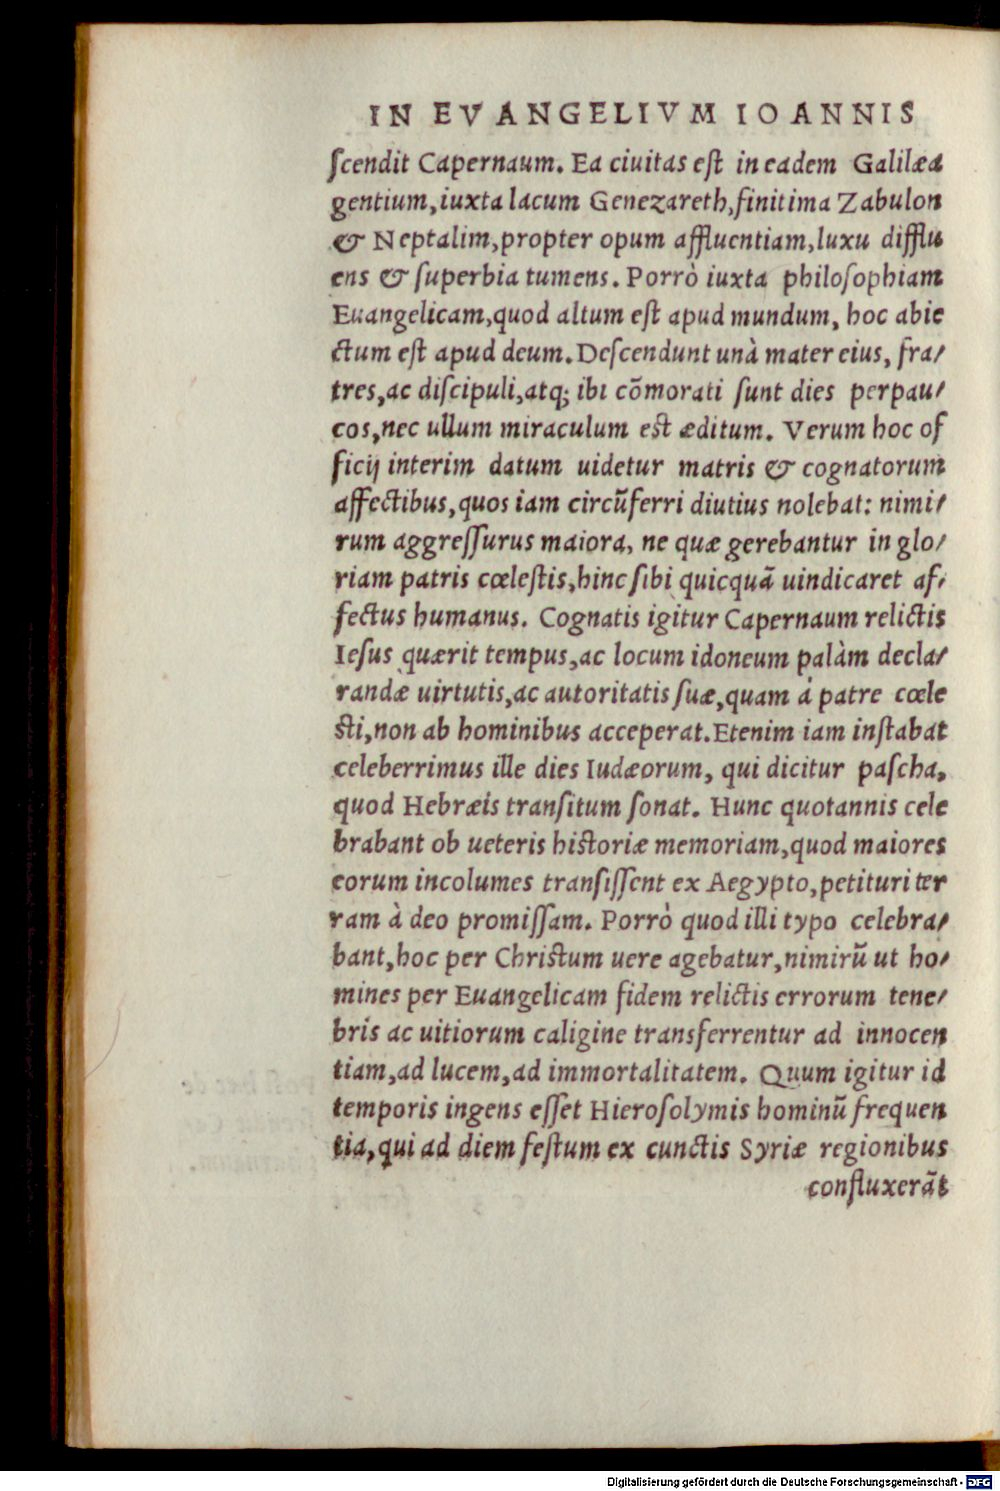 IN EVANGELIVM IOANNIS
ſcendit Capernaum. Ea ciuitas eſt in eadem Galilæa
gentium, iuxta lacum Genezareth, finitima Zabulon
& Neptalim, propter opum affluentiam, luxu difflu
ens & ſuperbia tumens. Porrò iuxta philoſophiam
Euangelicam, quod altum eſt apud mundum, hoc abie
ctum eſt apud deum. Deſcendunt unà mater eius, fra/
tres, ac diſcipuli, atq; ibi cõmorati ſunt dies perpau/
cos, nec ullum miraculum est æditum. Verum hoc of
ficij interim datum uidetur matris & cognatorum
affectibus, quos iam circũferri diutius nolebat: nimi/
rum aggreſſurus maiora, ne quæ gerebantur in glo/
riam patris cœleſtis, hinc ſibi quicquã uindicaret af/
fectus humanus. Cognatis igitur Capernaum relictis
Ieſus quærit tempus, ac locum idoneum palàm decla/
randæ uirtutis, ac autoritatis ſuæ, quam à patre cœle
sti, non ab hominibus acceperat. Etenim iam inſtabat
celeberrimus ille dies Iudæorum, qui dicitur paſcha,
quod Hebræis tranſitum ſonat. Hunc quotannis cele
brabant ob ueteris historiæ memoriam, quod maiores
eorum incolumes tranſiſſent ex Aegypto, petituri ter
ram à deo promiſſam. Porrò quod illi typo celebra/
bant, hoc per Christum uere agebatur, nimirũ ut ho/
mines per Euangelicam fidem relictis errorum tene/
bris ac uitiorum caligine transferrentur ad innocen
tiam, ad lucem, ad immortalitatem. Quum igitur id
temporis ingens eſſet Hieroſolymis hominũ frequen
tia, qui ad diem feſtum ex cunctis Syriæ regionibus
confluxerãt
Digitalisierung gefördert durch die Deutsche Forschungsgemeinschaft - DFG